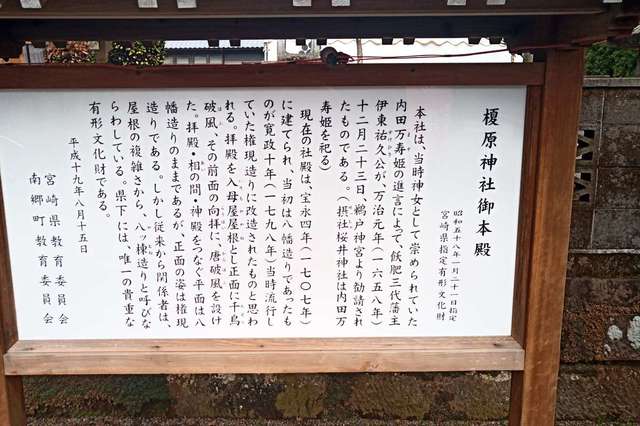 榎原神社御本殿
昭和五十八年一月二十一日指定
宮崎県指定有形文化財
本社は、当時神女として崇められていた
内田万寿姫の進言によって、飫肥三代藩主
伊東祐久公が、万治元年（一六五八年）
十二月二十三日、鵜戸神宮より勧請され
たものである。（摂社桜井神社は内田万
寿姫を祀る）
現在の社殿は、宝永四年（一七〇七年）
に建てられ、当初は八幡造りであったも
のが寛政十年（一七九八年）当時流行し
ていた権現造りに改造されたものと思わ
れる。拝殿を入母屋屋根とし正面に千鳥
破風、その前面の向拝に、唐破風を設け
た。拝殿・相の間・神殿をつなぐ平面は八
幡造りのままであるが、正面の姿は権現
造りである。しかし従来から関係者は、
屋根の複雑さから、八ッ棟造りと呼びな
らわしている。県下には、唯一の貴重な
有形文化財である。
平成十九年八月十五日
宮崎県教育委員会
南郷町教育委員会